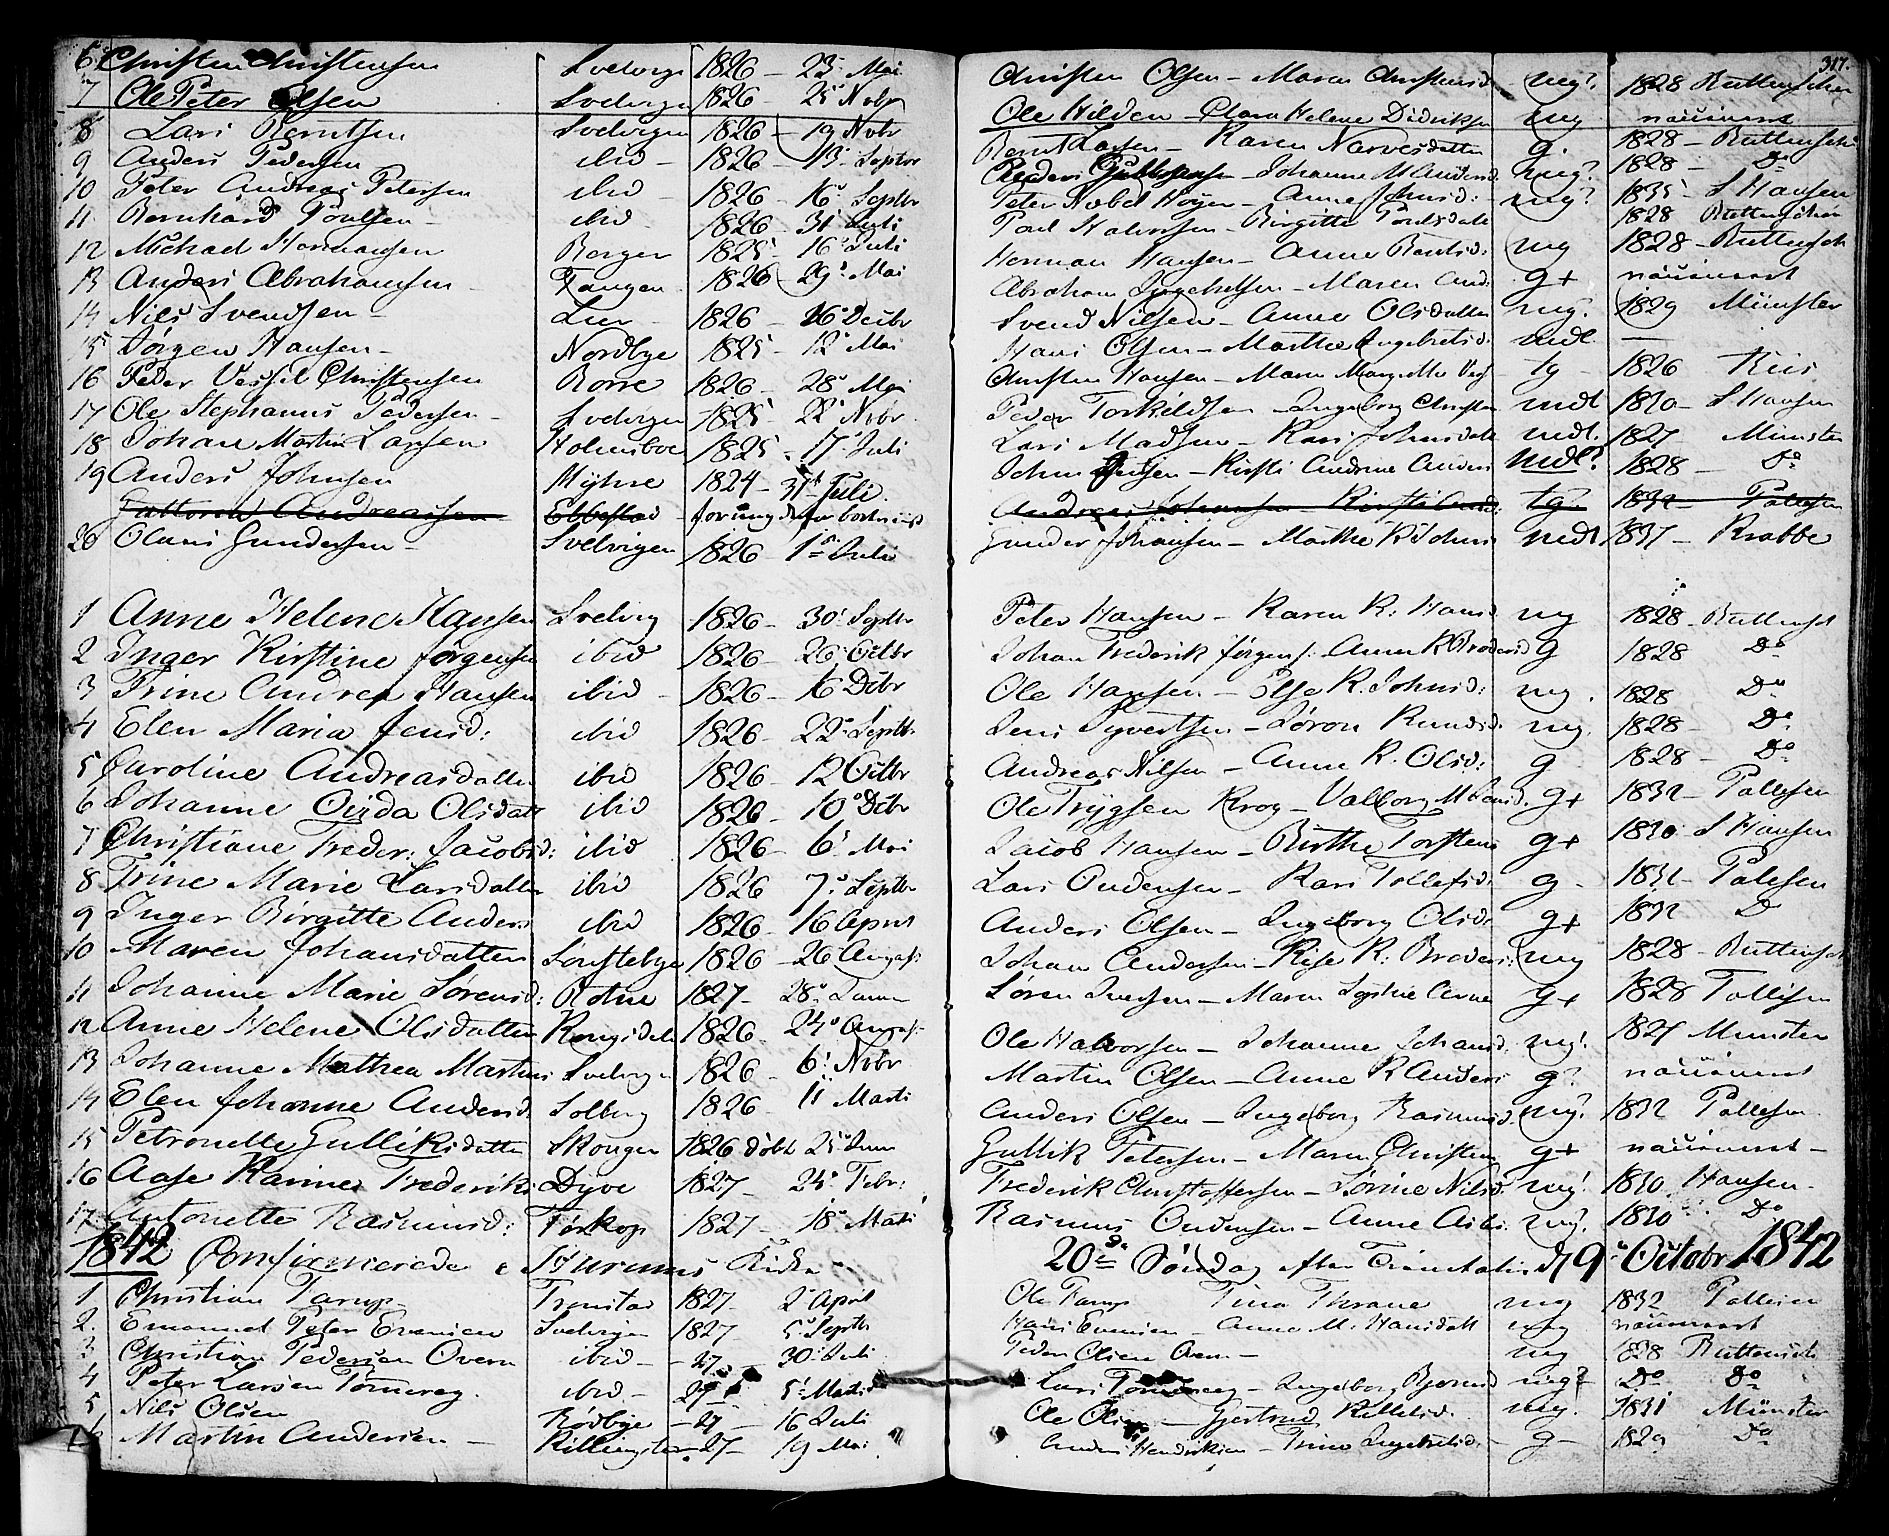 317.
6 Christen Christensen Svelvigen 1826 - 23 Mai Christen Olsen - Maren Christensd. mg? 1828 Buttenschen
7 Ole Peter Olsen Svelvigen 1826 - 25 Novbr Ole Hilden - Clara Helene Didriksen mg
8 Lars Berntsen Svelvigen 1826 - 19 Novbr Bernt Larsen - Karen Narvesdatten g. 1828 - Buttensch
9 Anders Pedersen ibid - 1826 - 13 Septbr Johanne M Andersd. mg? 1828 - Do
10 Peter Andreas Petersen ibid - 1826 - 16 Septbr Peter Nobel Høyer - Anne Johnsd: mg? 1835 S Hansen
11 Bernhard Poulsen - ibid - 1826 - 31 Juli Poul Halvorsen - Birgitte Poulsdatt 1828 Buttenschen
12 Michael Hermansen Berger 1825 - 16 Juli Herman Hansen - Anne Berntsd: mg 1828 - Buttensch
13 Anders Abrahamsen - Tangen 1826 29 Mai Abraham Ingebretsen - Maren And. g+
14 Nils Svendsen - Lier - 1826 - 26 Decbr Svend Nilsen - Anne Olsdatten mg. 1829 Münster
15 Jørgen Hansen - Nordbye 1825 - 12 Mai Hans Olsen - Marthe Ingebretsd. mdl. -
16 Peder Vessel Christensen Borre 1826 - 28 Mai Christen Hansen - Maren Margrethe Ves tg - 1826 Kiis
17 Ole Stephanus Pedersen - Svelvigen 1825 - 22 Novbr. Peder Torkildsen - Ingeborg Christen mdl 1830 - S Hansen
18 Johan Martin Larsen Holmsboe 1825 - 17 Juli Lars Madsen - Kari Johnsdatt mdl. 1827 - Münster
19 Anders Johnsen Myhre 1824 - 31 Juli. John Jensen - Kirsti Andrine Anders mdl? 1828 - Do
Guttorm Andreassen Ebbestad - Andreas Johansen - Kirsti tg? 1832 - Pallesen
20 Olaus Gundersen - Svelvigen 1826 - 1 Juli Gunder Johansen - Marthe K Johns mdl. 1837 - Krabbe
1 Anne Helene Hansen Svelvig 1826 - 30 Septbr Peter Hansen - Karen K: Hansd. mg 1828 - Buttensch
2 Inger Kirstine Jørgensen ibid 1826 - 26 Octbr Johan Frederik Jørgens. Anne K Brodersd g 1828 Do
3 Trine Andrea Hansen ibid - 1826 - 16 Decbr Ole Hansen - Else K. Johnsd: mg. 1828 Do
4 Elen Maria Jensd: ibid 1826 - 22 Septbr Jens Syvertsen - Jøron Knudsd. mg. 1828 - Do
5 Caroline Andreasdatten ibid 1826 - 12 Octbr Andreas Nilsen - Anne K. Olsd: g 1828 - Do
6 Johanne Ovida Olsdatt ibid 1826 - 10 Decbr Ole Trygsen Krog - Valborg M g+ 1832 - Pallesen
7 Christiane Freder: Jacobsd: ibid 1826 - 6 Mai Jacob Hansen - Birthe Torstens g+ 1830 S Hansen
8 Trine Marie Larsdatten ibid 1826 7 Septbr Lars Oudensen - Kari Tollefsd: g - 1832 - Palesen
9 Inger Birgitte Anders ibid 1826 - 16 April Anders Olsen - Ingeborg Olsd: g+ 1832 D
10 Maren Johansdatten 1826 - 26 August Johan Andersen - K: Broders: mg 1828 - Buttensch
11 Johanne Marie Sørensd: Rotne 1827 - 28 Janu Søren Iversen - Maren Arne g+ 1828 Pallesen
12 Anne Helene Olsdatten Kongsdele 1826. 24 August Ole Halvorsen - Johanne Johansd. mg? 1827 Munster
13 Johanne Mathea Martins Svelvigen 1826 - 6 Novbr Martin Olsen - Anne K Anders g?
14 Elen Johanne Andersd. Solberg 1826 - 11 Marti Anders Olsen - Ingeborg Rasmusd. mg? 1832 Pallesen
15 Petronelle Gulliksdatten Skouger 1826 døbt 25 Jun Gullik Petersen - Maren Christens g+
16 Aase Karine Frederiks Dyve 1827 - 24 Febr: Frederik Christoffersen - Sørine Nilsd. mg! 1830 Hansen -
17 Antonette Rasmusd: Foskop 1827 - 18 Marti Rasmus Oudensen - Anne mg. 1830 Do
1842 Confirmerede i Hurums Kirke 20de Søndag efter Trinitatis d 9 Octobr 1842
1 Christian Tarup Tronstad 1827 - 2 April Ole Tarup Tina Thrane mg 1832 Pallesen
2. Emanuel Peter Evensen Svelvigen 1827 - 5 Septbr Hans Evensen - Anne M. Hansdatt mg
3 Christian Pedersen Overn ibid - - 27 - 30 Juli Peder Olsen Overn - mg 1828 Buttensch
4 Peter Larsen Tømmerag. ibid - 27 - 5 Martii Lars - Ingeborg Bjørnsd mg? Do Do
5 Nils Olsen Rødbye - 27 - 16 Juli Ole Olsen - Gjertrud Killilsd. mg. 1831 Münster
6 Martin Andersen - Killingstad - 27 - 19 Mai Anders Hendriksen - Trine Ingebretsd. - g - 1829 Do